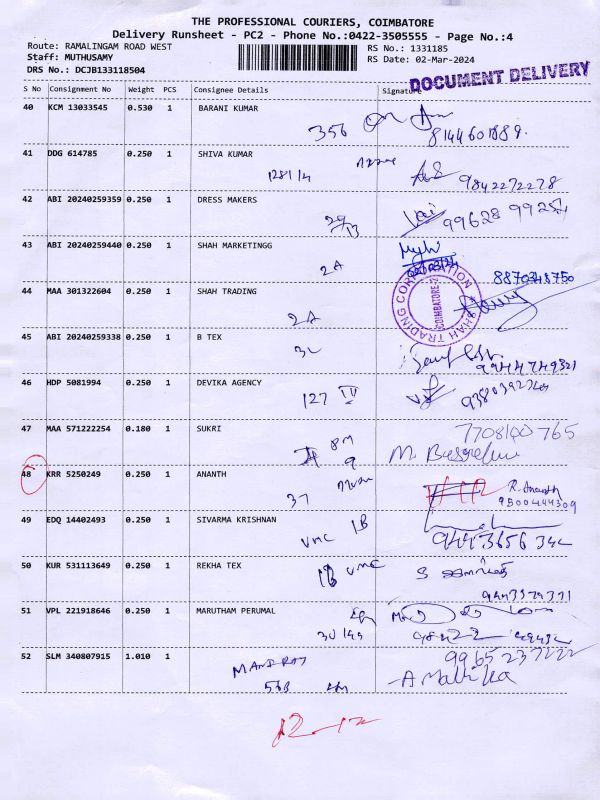 THE PROFESSIONAL COURIERS, COIMBATORE
Delivery Runsheet - PC2 - Phone No.:0422-3505555 - Page No.:4
Route: RAMALINGAM ROAD WEST
RS No.: 1331185
Staff: MUTHUSAMY
RS Date: 02-Mar-2024
DRS No.: DCJB133118504
DOCUMENT DELIVERY
S No Consignment No Weight PCS Consignee Details Signature
40 KCM 13033545 0.530 1 BARANI KUMAR
356
8144601889.
41 DDG 614785 0.250 1 SHIVA KUMAR
128/14
9842272278
42 ABI 20240259359 0.250 1 DRESS MAKERS
29/13
99628 99254
43 ABI 20240259440 0.250 1 SHAH MARKETINGG
2A
8870348750
44 MAA 301322604 0.250 1 SHAH TRADING
2A
SHAH TRADING CORPORATION
COIMBATORE-
45 ABI 20240259338 0.250 1 B TEX
3L
9944749321
46 HDP 5081994 0.250 1 DEVIKA AGENCY
127 IV
47 MAA 571222254 0.180 1 SUKRI
7708100765
9
M.
48 KRR 5250249 0.250 1 ANANTH
37
R. Ananth
9500444309
49 EDQ 14402493 0.250 1 SIVARMA KRISHNAN
VMC 1B
9443656342
50 KUR 531113649 0.250 1 REKHA TEX
1B VMC
9443379331
51 VPL 221918646 0.250 1 MARUTHAM PERUMAL
30/49
52 SLM 340807915 1.010 1
MANI RAJ
9965237222
56B
A Mallika
12-12